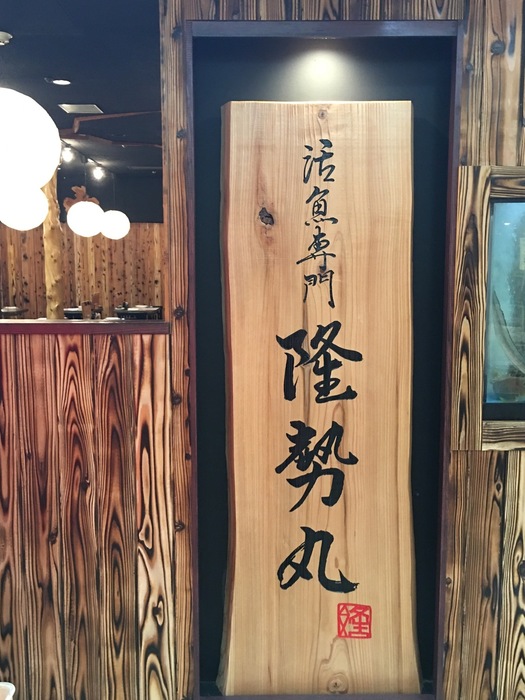 活魚専門
隆勢丸